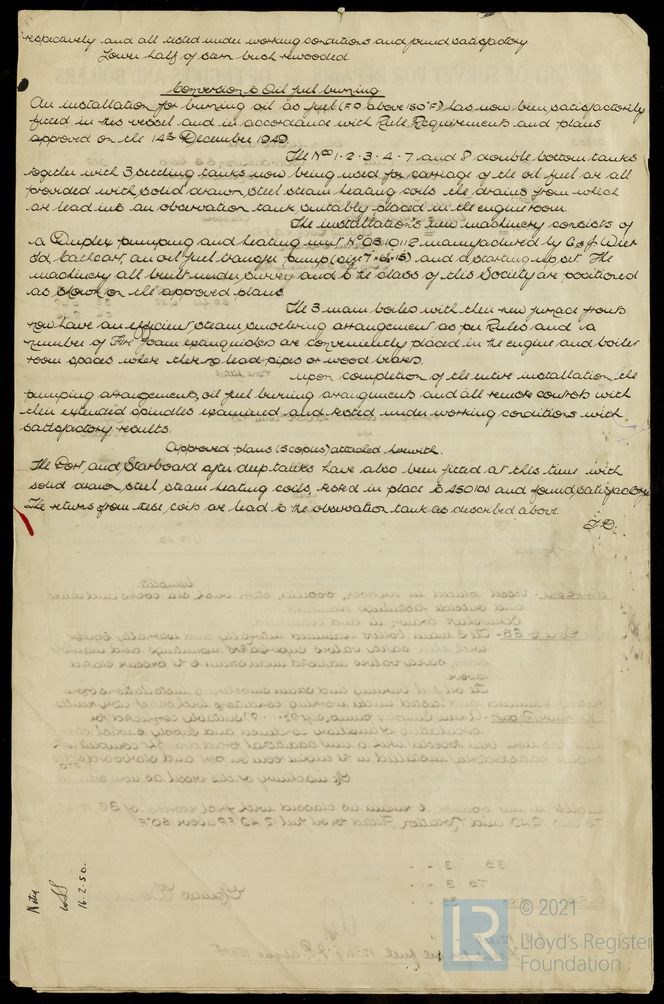 respectively and all tested under working conditions and found satisfactory
Lower half of stern bush rewooded
Conversion to Oil fuel burning
An installation for burning oil as fuel (F.P. above 150°F) has now been satisfactorily
fitted in this vessel and in accordance with Rule Requirements and plans
approved on the 14th December 1949.
The Nos 1·2·3·4·7 and 8 double bottom tanks
together with 3 settling tanks now being used for carriage of the oil fuel are all
provided with solid drawn steel steam heating coils the drains from which
are lead into an observation tank suitably placed in the engine room.
The installation's new machinery consists of
a Duplex pumping and heating unit No manufactured by G & J Weir
Ltd, Cathcart, an oil fuel transfer pump and a starting up set. The
machinery all built under survey and to the class of this Society are positioned
as shown on the approved plans
The 3 main boilers with their new furnace fronts
now have an efficient steam smothering arrangement as per Rules and a
number of Fire foam extinguishers are conveniently placed in the engine and boiler
room spaces where there no lead pipes or wood bearers.
Upon completion of the entire installation the
pumping arrangements, oil fuel burning arrangements and all remote controls with
their extended spindles examined and tested under working conditions with
satisfactory results.
Approved plans (3 copies) attached herewith.
The Port and Starboard after deep tanks have also been fitted at this time with
solid drawn steel steam heating coils, tested in place to 450 lbs and found satisfactory
The returns from these coils are lead to the observation tank as described above.
Noted
16.2.50.
LR
© 2021
Lloyd's Register
Foundation